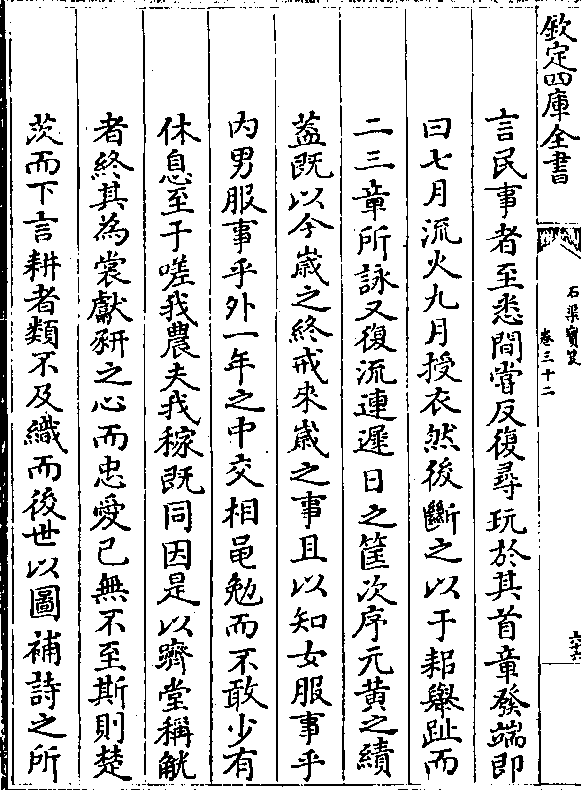 欽定四庫全書
石渠寳笈
卷三十二
六六
言民事者至悉間嘗反復尋玩於其首章發端即
曰七月流火九月授衣然後斷之以于耜舉趾而
二三章所詠又復流連遲日之筐次序元黄之績
葢既以今嵗之終戒来嵗之事且以知女服事乎
内男服事乎外一年之中交相黽勉而不敢少有
休息至于嗟我農夫我稼既同因是以躋堂稱觥
者終其為裳獻豜之心而忠愛已無不至斯則楚
茨而下言耕者類不及織而後世以圖補詩之所